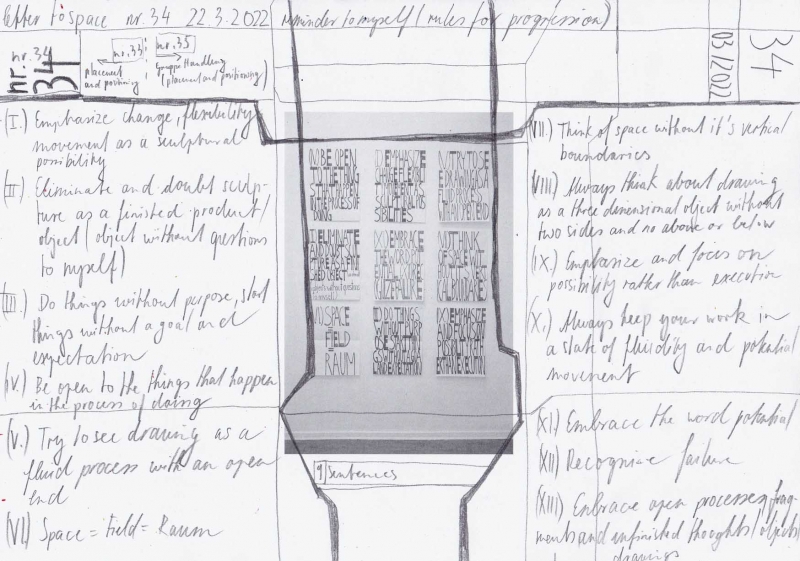 letter to space nr. 34 22.3.2022 reminder to myself (rules for progression)
nr. 34
34
nr. 33 nr. 35
placement and positioning
Gruppe Handlung
(placement and positioning)
03/2022
34
(I.) Emphasize change, flexibility
movement as a sculptural
possibility
(II) Eliminate and doubt sculp-
ture as a finished product/
object (object without questions
to myself)
(III) Do things without purpose, start
things without a goal and
expectation
(IV.) Be open to the things that happen
in the process of doing
(V.) Try to see drawing as a
fluid process with an open
end
(VI) Space = Field = Raum
VII.) Think of space without it's vertical
boundaries
VIII) Always think about drawing
as a three dimensional object without
two sides and no above or below
(IX.) Emphasize and focus on
possibility rather than execution
(X.) Always keep your work in
a state of fluidity and potential
movement
(XI) Embrace the word potential
(XII) Recognize failure
(XIII) Embrace open processes, frag-
ments and unfinished thoughts/objects/
drawings
BE OPEN
TO THE THINGS
THAT HAPPEN
IN THE PROCESS OF
DOING
EMPHASIZE
CHANGE FLEXIBILITY
MOVEMENT AS
SCULPTURAL POS
SIBILITIES
TRY TO SEE
DRAWING AS A
FLUID PROCESS
WITH AN OPEN END
ELIMINATE
AND DOUBT
EMBRACE
THE WORD POT
ENTIAL
FAILURE
THINK
OF SPACE WITH
VERTI
CAL BOUNDARIES
SPACE
=
FIELD
=
RAUM
DO THINGS
WITHOUT PURP
OSE START
AND EXPECTATION
EMPHASIZE
AND FOCUS ON
POSSIBILITY
9 Sentences